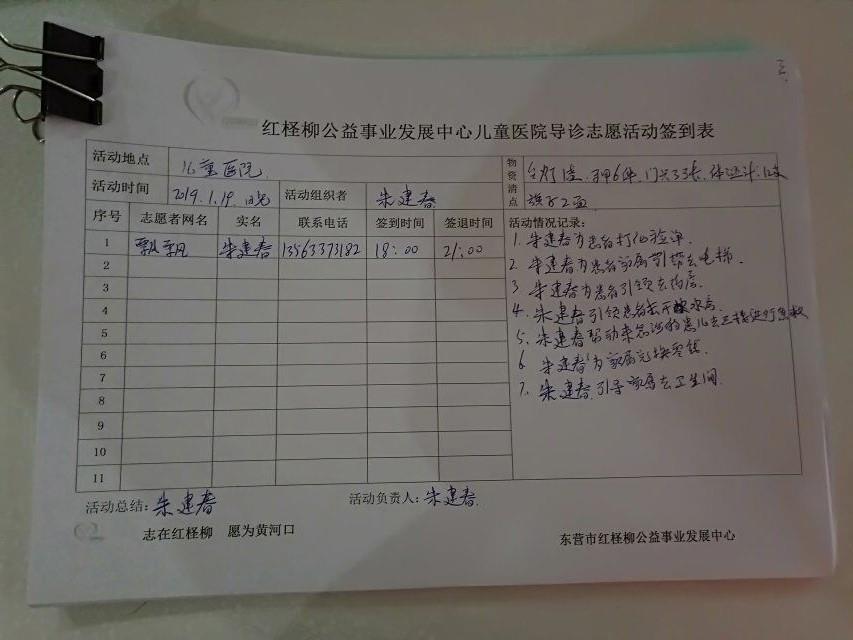 红柽柳公益事业发展中心儿童医院导诊志愿活动签到表
活动地点 儿童医院
物资清点
活动时间 2019.1.19. 活动组织者 朱建春
旗子2面
序号 志愿者网名 实名 联系电话 签到时间 签退时间 活动情况记录:
1 飘飘 朱建春 13563373182 18:00 21:00
1. 朱建春为患者打化验单.
2
2. 朱建春为患者家属引领去电梯.
3
3 朱建春为患者引领去药房.
4
4. 朱建春引领患者去开水房.
5
5. 朱建春帮助来就诊的患儿去三楼进行
6
6 朱建春为家属兑换零钱.
7
7. 朱建春引导家属去卫生间.
8
9
10
11
活动总结: 朱建春 活动负责人: 朱建春.
志在红柽柳 愿为黄河口 东营市红柽柳公益事业发展中心